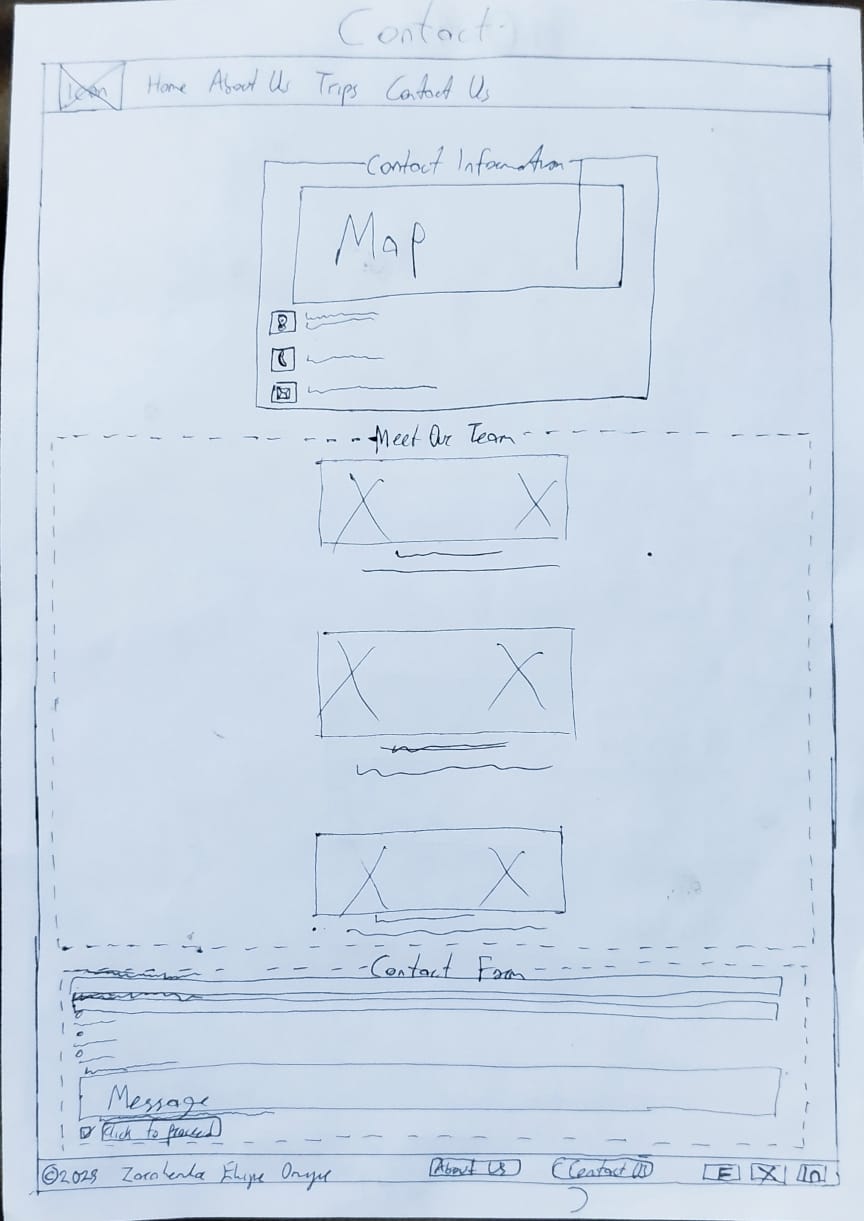 Contact
Icon Home About Us Trips Contact Us
Contact Information
Map
Meet Our Team
Contact Form
Message
Click to proceed
About Us Contact Us X in